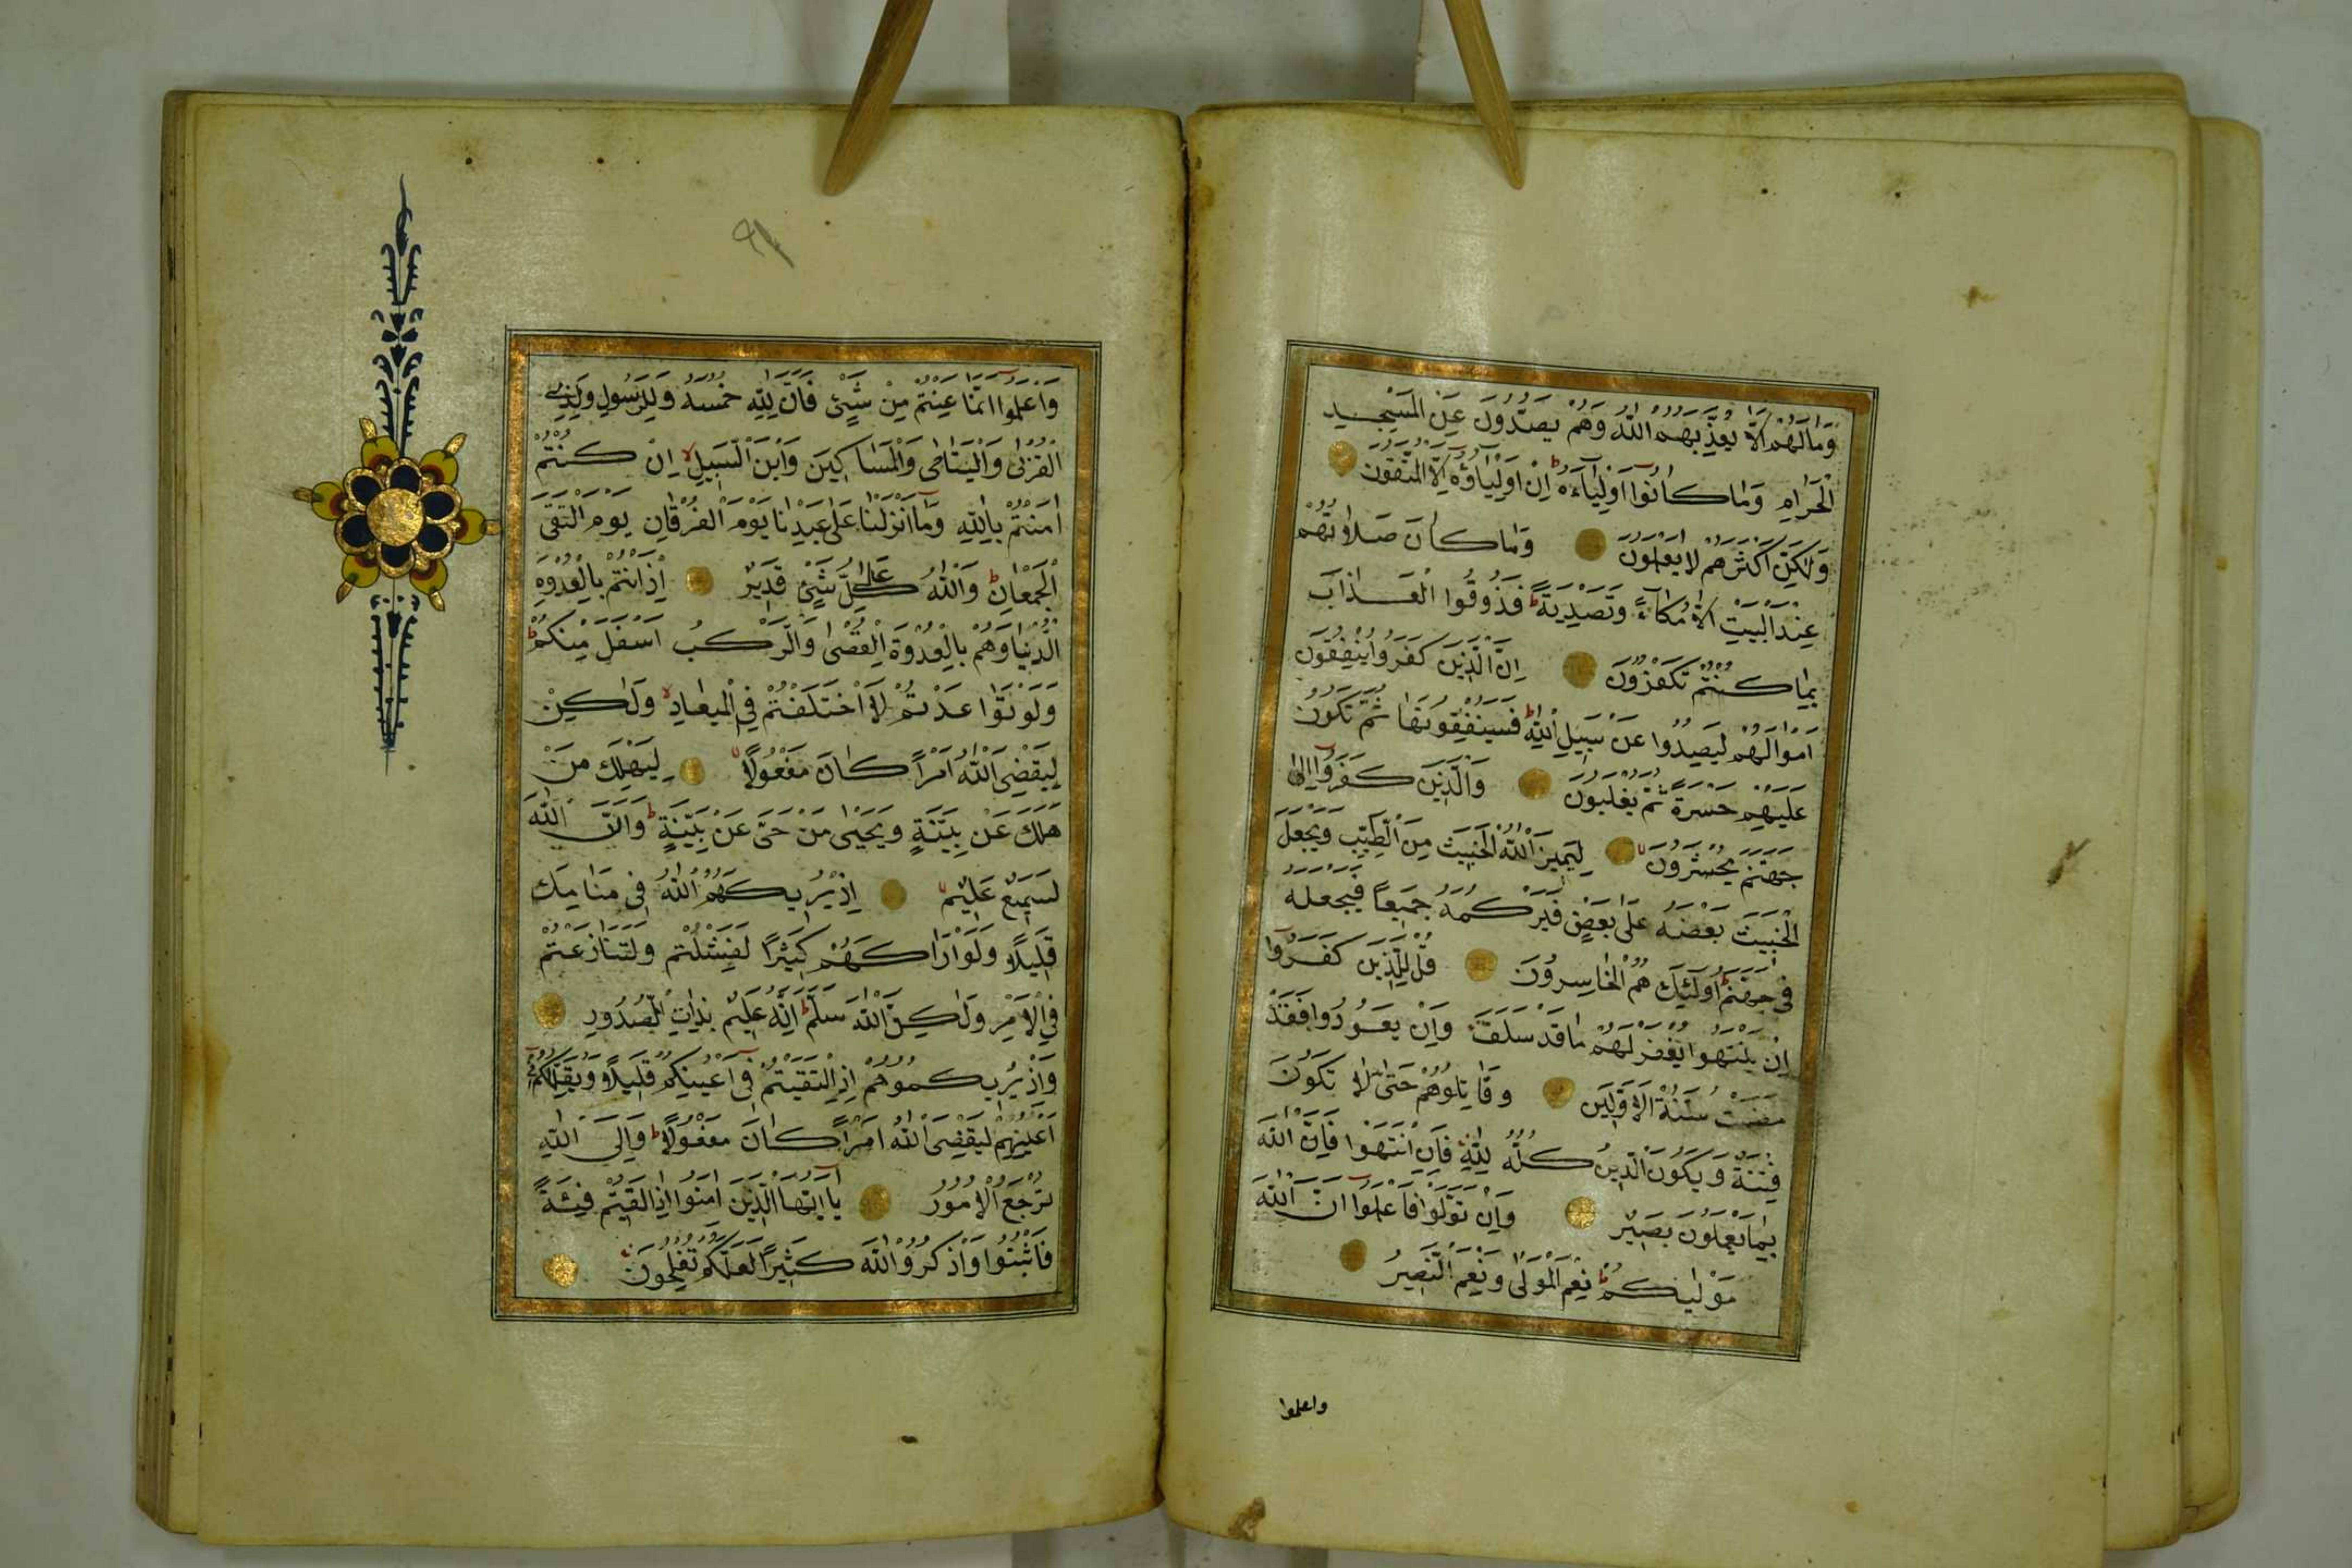 وَمَالَهُمْ اَلَّا يُعَذِّبَهُمُ اللّٰهُ وَهُمْ يَصُدُّونَ عَنِ الْمَسْجِدِ
الْحَرَامِ وَمَا كَانُوا اَوْلِيَاءَهُ اِنْ اَوْلِيَاؤُهُ اِلَّا الْمُتَّقُونَ
وَلٰكِنَّ اَكْثَرَهُمْ لَا يَعْلَمُونَ وَمَا كَانَ صَلَاتُهُمْ
عِنْدَ الْبَيْتِ اِلَّا مُكَاءً وَتَصْدِيَةً فَذُوقُوا الْعَذَابَ
بِمَا كُنْتُمْ تَكْفُرُونَ اِنَّ الَّذِينَ كَفَرُوا يُنْفِقُونَ
اَمْوَالَهُمْ لِيَصُدُّوا عَنْ سَبِيلِ اللّٰهِ فَسَيُنْفِقُونَهَا ثُمَّ تَكُونُ
عَلَيْهِمْ حَسْرَةً ثُمَّ يُغْلَبُونَ وَالَّذِينَ كَفَرُوا اِلٰى
جَهَنَّمَ يُحْشَرُونَ لِيَمِيزَ اللّٰهُ الْخَبِيثَ مِنَ الطَّيِّبِ وَيَجْعَلَ
الْخَبِيثَ بَعْضَهُ عَلٰى بَعْضٍ فَيَرْكُمَهُ جَمِيعًا فَيَجْعَلَهُ
فِى جَهَنَّمَ اُولٰئِكَ هُمُ الْخَاسِرُونَ قُلْ لِلَّذِينَ كَفَرُوا
اِنْ يَنْتَهُوا يُغْفَرْ لَهُمْ مَا قَدْ سَلَفَ وَاِنْ يَعُودُوا فَقَدْ
مَضَتْ سُنَّةُ الْاَوَّلِينَ وَقَاتِلُوهُمْ حَتّٰى لَا تَكُونَ
فِتْنَةٌ وَيَكُونَ الدِّينُ كُلُّهُ لِلّٰهِ فَاِنِ انْتَهَوْا فَاِنَّ اللّٰهَ
بِمَا يَعْمَلُونَ بَصِيرٌ وَاِنْ تَوَلَّوْا فَاعْلَمُوا اَنَّ اللّٰهَ
مَوْلٰيكُمْ نِعْمَ الْمَوْلٰى وَنِعْمَ النَّصِيرُ
واعلموا
وَاعْلَمُوا اَنَّمَا غَنِمْتُمْ مِنْ شَيْءٍ فَاَنَّ لِلّٰهِ خُمُسَهُ وَلِلرَّسُولِ وَلِذِى
الْقُرْبٰى وَالْيَتَامٰى وَالْمَسَاكِينِ وَابْنِ السَّبِيلِ اِنْ كُنْتُمْ
اٰمَنْتُمْ بِاللّٰهِ وَمَا اَنْزَلْنَا عَلٰى عَبْدِنَا يَوْمَ الْفُرْقَانِ يَوْمَ الْتَقَى
الْجَمْعَانِ وَاللّٰهُ عَلٰى كُلِّ شَيْءٍ قَدِيرٌ اِذْ اَنْتُمْ بِالْعُدْوَةِ
الدُّنْيَا وَهُمْ بِالْعُدْوَةِ الْقُصْوٰى وَالرَّكْبُ اَسْفَلَ مِنْكُمْ
وَلَوْ تَوَاعَدْتُمْ لَاخْتَلَفْتُمْ فِى الْمِيعَادِ وَلٰكِنْ
لِيَقْضِىَ اللّٰهُ اَمْرًا كَانَ مَفْعُولًا لِيَهْلِكَ مَنْ
هَلَكَ عَنْ بَيِّنَةٍ وَيَحْيٰى مَنْ حَىَّ عَنْ بَيِّنَةٍ وَاِنَّ اللّٰهَ
لَسَمِيعٌ عَلِيمٌ اِذْ يُرِيكَهُمُ اللّٰهُ فِى مَنَامِكَ
قَلِيلًا وَلَوْ اَرَاكَهُمْ كَثِيرًا لَفَشِلْتُمْ وَلَتَنَازَعْتُمْ
فِى الْاَمْرِ وَلٰكِنَّ اللّٰهَ سَلَّمَ اِنَّهُ عَلِيمٌ بِذَاتِ الصُّدُورِ
وَاِذْ يُرِيكُمُوهُمْ اِذِ الْتَقَيْتُمْ فِى اَعْيُنِكُمْ قَلِيلًا وَيُقَلِّلُكُمْ فِى
اَعْيُنِهِمْ لِيَقْضِىَ اللّٰهُ اَمْرًا كَانَ مَفْعُولًا وَاِلَى اللّٰهِ
تُرْجَعُ الْاُمُورُ يَا اَيُّهَا الَّذِينَ اٰمَنُوا اِذَا لَقِيتُمْ فِئَةً
فَاثْبُتُوا وَاذْكُرُوا اللّٰهَ كَثِيرًا لَعَلَّكُمْ تُفْلِحُونَ